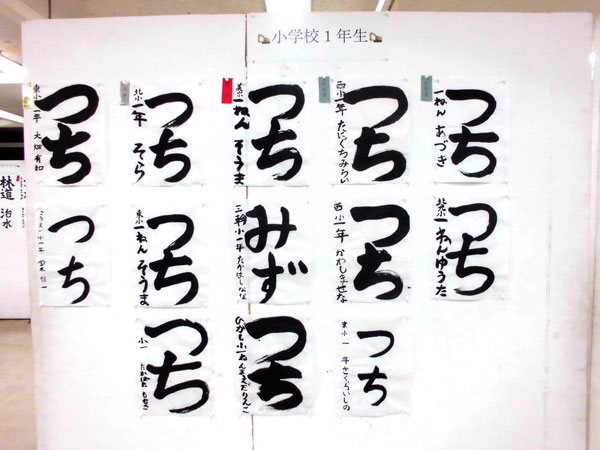 小学校1年生
つち
東小一年 大畑有和
つち
北小一年 そら
つち
一ねん そうま
つち
西小一年 たにぐちみらい
つち
一ねん あづき
つち
つち
東小一ねん そうま
みず
小一年 たかはしなな
つち
西小一年
つち
一ねんゆうた
つち
小一
つち
ひがし小一ねん
つち
東小一年さくらいしの
林道 治水